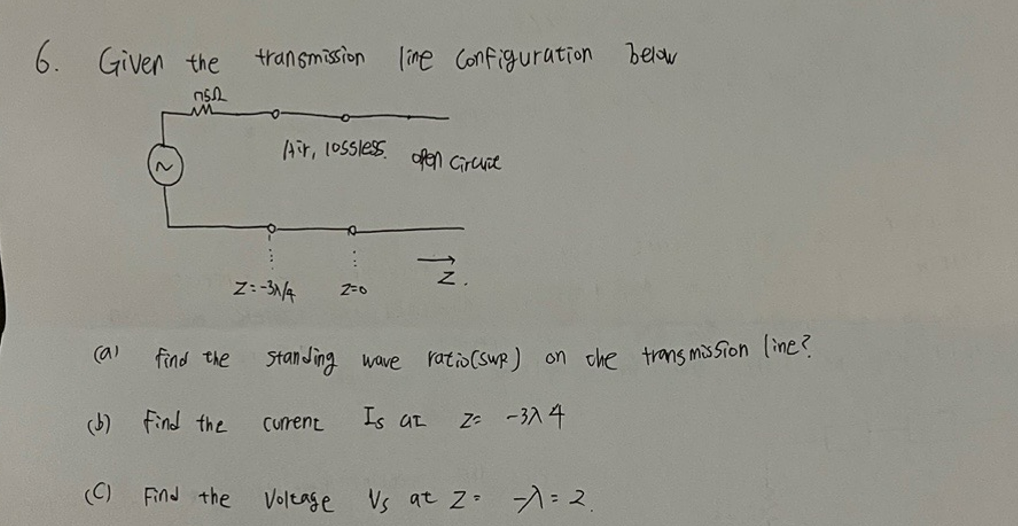 6. Given the transmission line configuration below
75Ω
Air, lossless. open circuit
Z=-3λ/4 Z=0 Z.
(a) find the standing wave ratio(SWR) on the transmission line?
(b) Find the current Is at Z= -3λ4
(C) Find the Voltage Vs at Z= -λ=2.